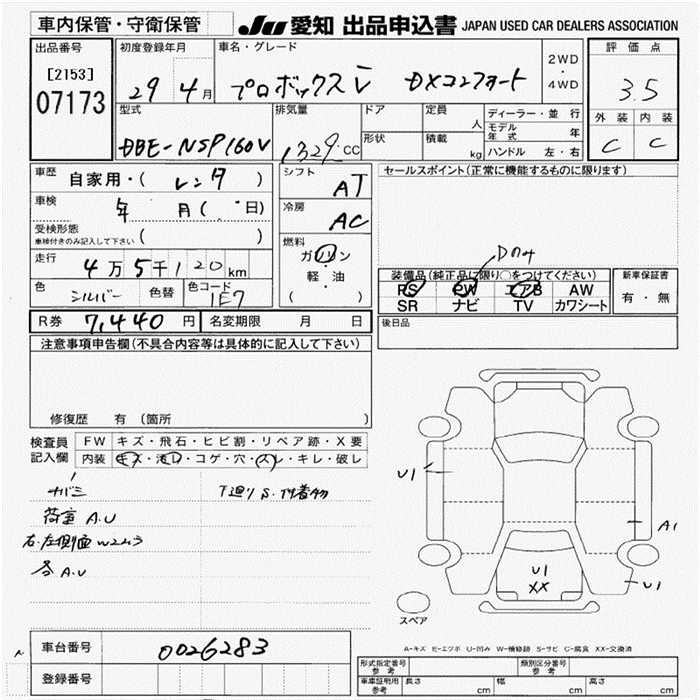 車内保管・守衛保管
JU 愛知 出品申込書 JAPAN USED CAR DEALERS ASSOCIATION
出品番号
[2153]
07173
初度登録年月
29 4月
車名・グレード
プロボックスV DXコンフォート
2WD
・
4WD
評価点
3.5
外装 内装
C C
型式
DBE-NSP160V
排気量
1329cc
ドア
形状
定員
人
積載
kg
ディーラー・並行
モデル年式 年
ハンドル 左・右
車歴
自家用・( レンタ )
車検
年 月( 日)
受検形態
車検付きのみ記入して下さい ( )
走行
4万5千120km
色 シルバー 色替 色コード 1E7
シフト
AT
冷房
AC
燃料
ガソリン
・
軽・油
( )
セールスポイント(正常に機能するものに限ります)
Dのみ
装備品(純正品に限り○をつけてください)
PS PW エアB AW
SR ナビ TV カワシート
新車保証書
有・無
後日品
R券 7,440円 名変期限 月 日
注意事項申告欄(不具合内容等は具体的に記入して下さい)
修復歴 有(箇所 )
検査員記入欄
FW キズ・飛石・ヒビ割・リペア跡・X要
内装 キズ・汚レ・コゲ・穴・スレ・キレ・破レ
サバミ
下廻りS.付着物
荷室 A.U
右.左側面W2.3
各A.U
U1
A1
U1
XX
U1
スペア
A-キズ E-エクボ U-凹み W-補修跡 S-サビ C-腐食 XX-交換済
車台番号 0026283
登録番号
形式指定番号 参考
類別区分番号 参考
車庫証明用 参考 長さ cm 幅 cm 高さ cm